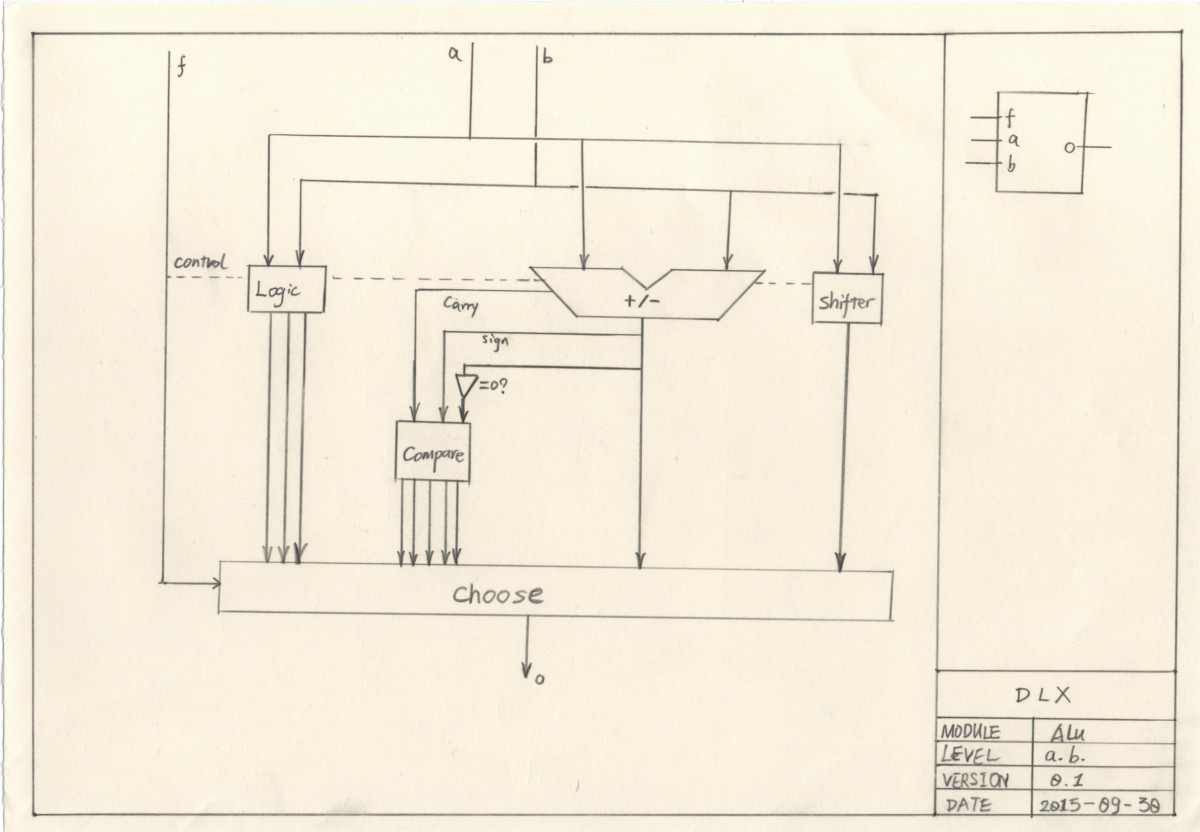 f
a
b
control
Logic
Carry
sign
=0?
Compare
+/-
Shifter
Choose
o
f
a
b
o
DLX
MODULE Alu
LEVEL a.b.
VERSION 0.1
DATE 2015-09-30